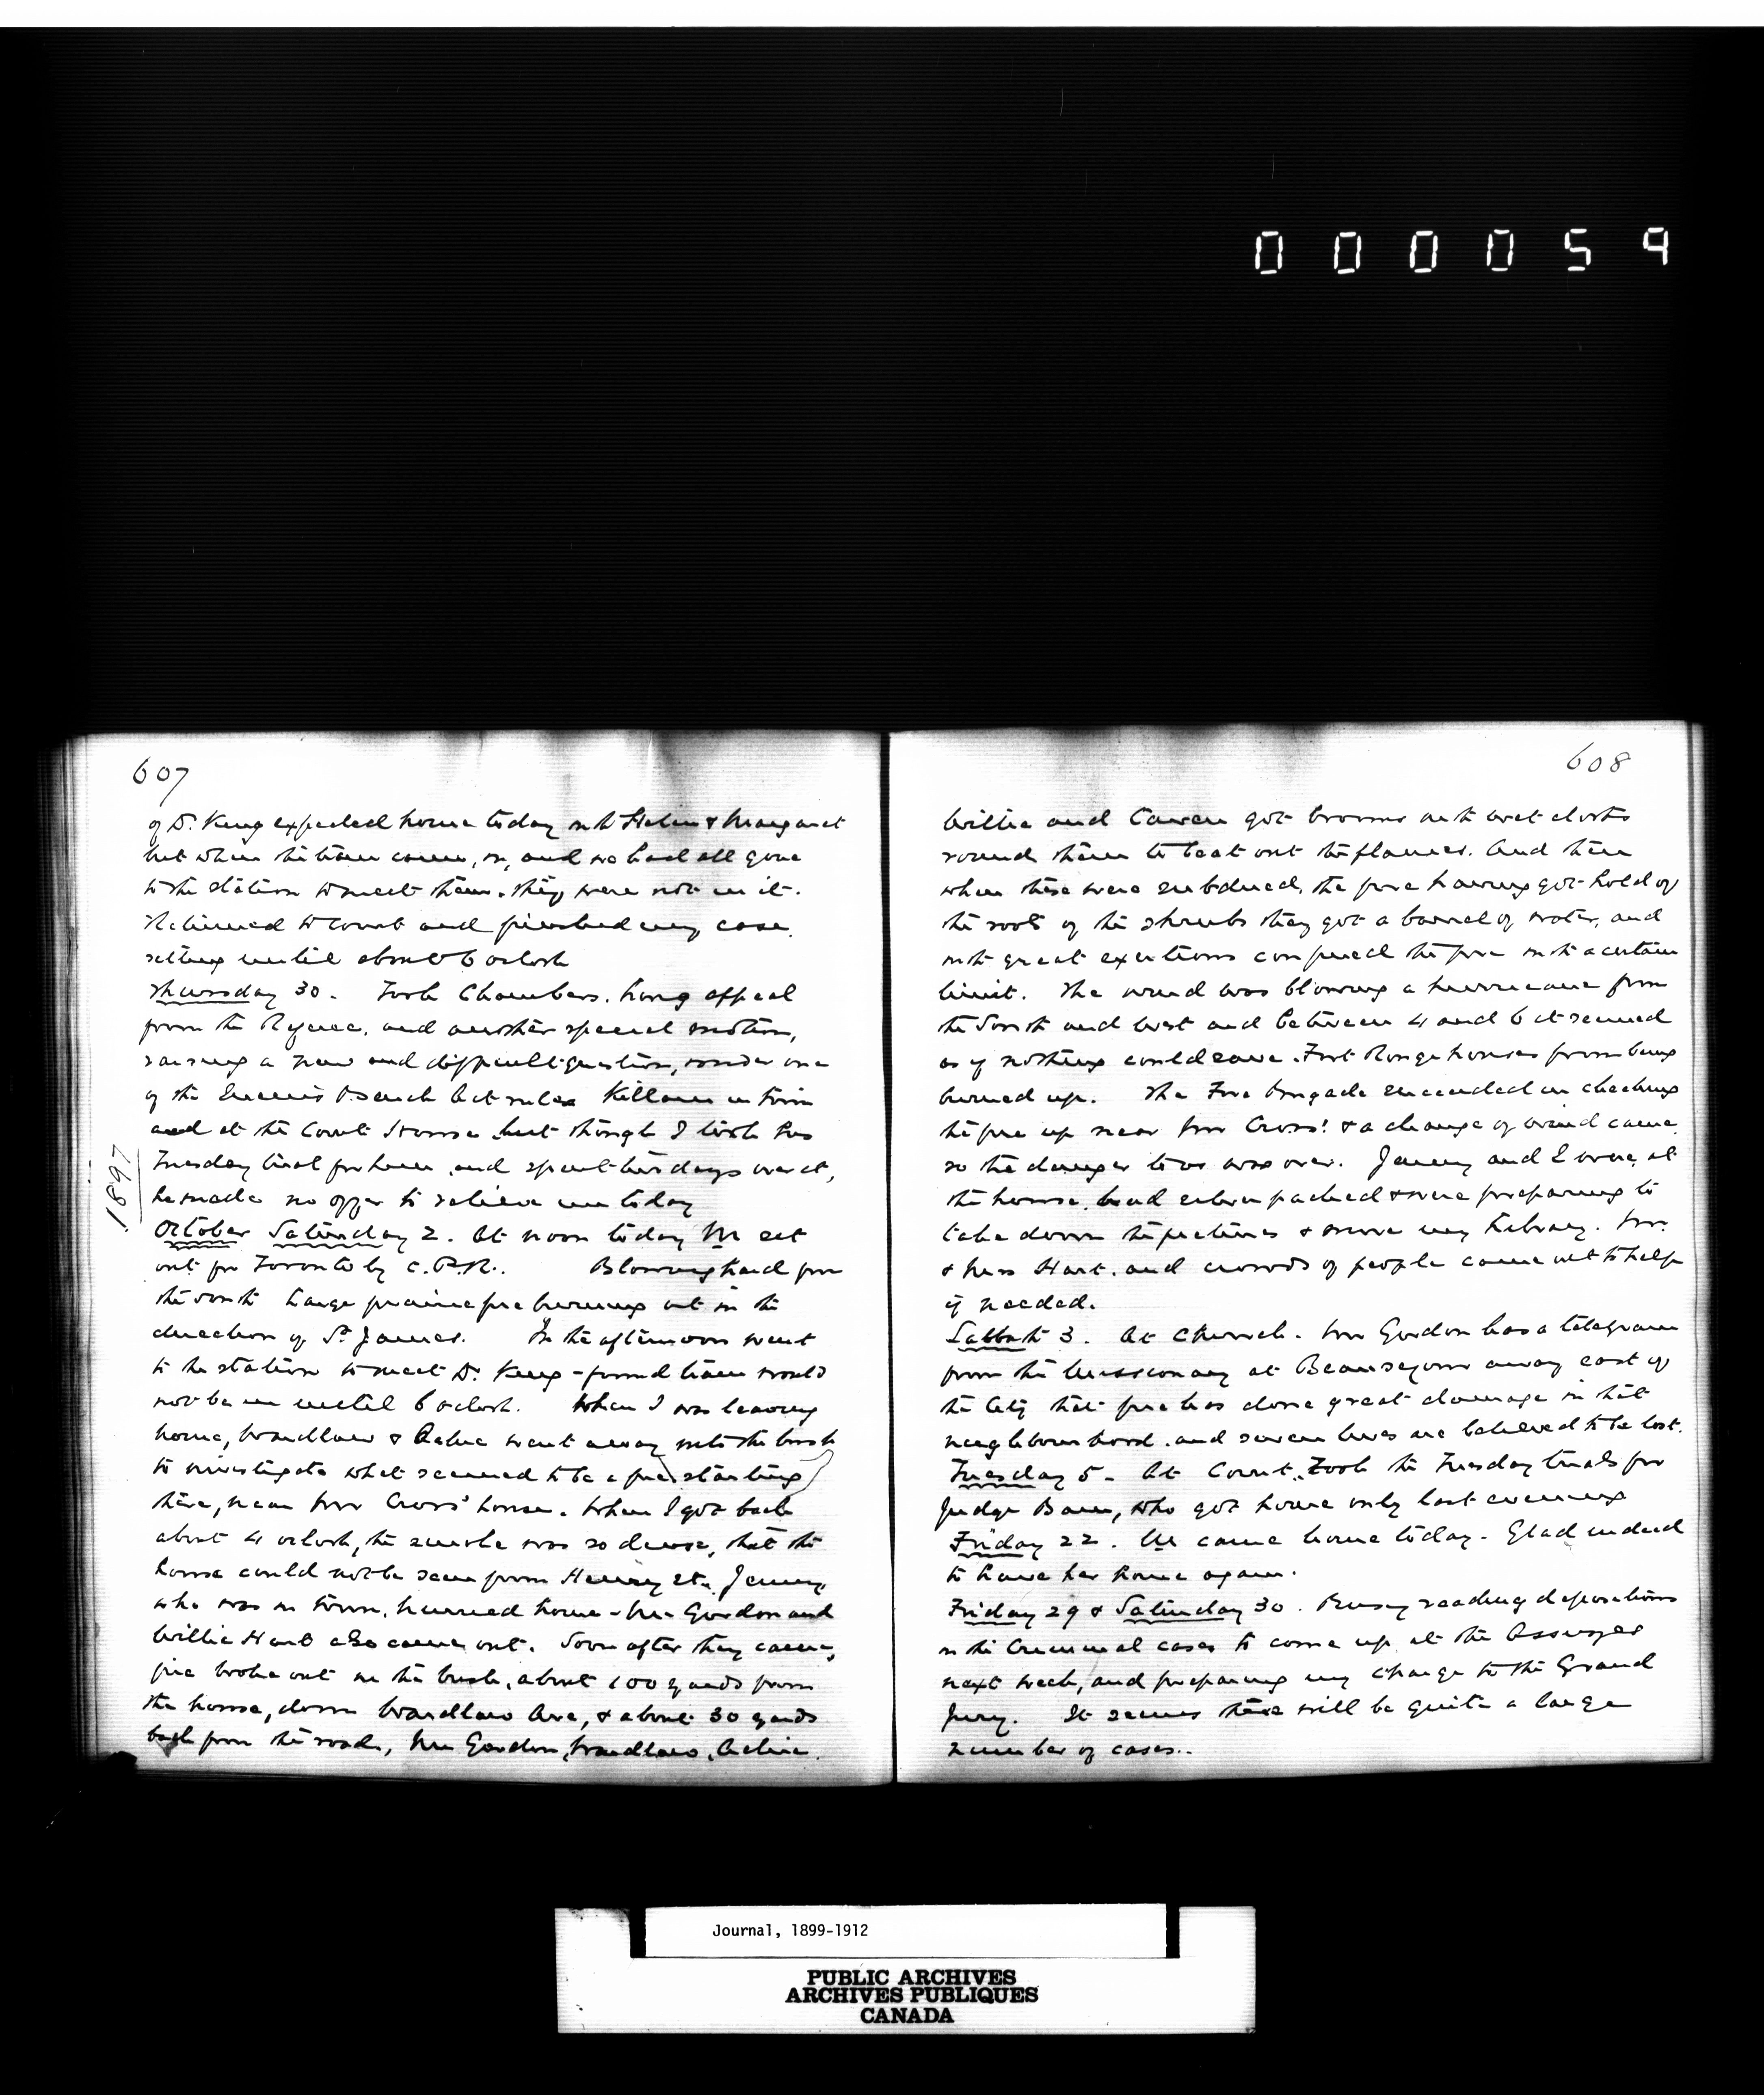 000059
607
of Dr. King expected home today with Helen & Margaret
but when the train came in, and we had all gone
to the station to meet them. they were not in it.
Returned to Court and finished my case.
sitting until about 6 oclock
Thursday 30. Took Chambers. Long appeal
from the Referee, and another special motion,
raising a new and difficult question, under one
of the Queen's Bench Act rules Killam in town
and at the Court House but though I took his
Tuesday trial for him, and spent two days over it,
he made no offer to relieve me today
1897
October Saturday 2. At noon today M set
out for Toronto by C.P.R. Blowing hard from
the South Large prairie fire burning out in the
direction of St James. In the afternoon went
to the station to meet Dr King - found train would
not be in until 6 oclock. When I was leaving
home, Wardlaw & went away into the bush
to investigate what seemed to be a fire starting
there, near Mr Cross' house. When I got back
about 4 oclock, the smoke was so dense, that the
house could not be seen from Henry St. Jenny,
who was in town, hurried home - Mr Gordon and
Willie Hart also came out. Soon after they came,
fire broke out in the bush, about 100 yards from
the house, down Wardlaw Ave, & about 30 yards
back from the road, Mr Gordon, Wardlaw,
608
Willie and Cowan got brooms with wet cloths
round them to beat out the flames. And then
when these were subdued, the fire having got hold of
the roots of the shrubs they got a barrel of water, and
with great exertions confined the fire with a certain
limit. The wind was blowing a hurricane from
the South and West and between 4 and 6 it seemed
as if nothing could save Fort Rouge houses from being
burned up. The Fire Brigade succeeded in checking
the fire up near Mr Cross' & a change of wind came,
so the danger to us was over. Jenny and I were, at
the house, had silver packed & were preparing to
take down the pictures & move my library. Mr.
& Mrs Hart. and crowds of people came out to help
if needed.
Sabbath 3. At Church. Mr Gordon has a telegram
from the Missionary at Beausejour away east of
the City that fire has done great damage in that
neighbourhood. and seven lives are believed to be lost.
Tuesday 5. At Court. Took the Tuesday trials for
Judge Bain, who got home only last evening
Friday 22. M came home today. Glad indeed
to have her home again.
Friday 29 & Saturday 30. Busy reading depositions
in the Criminal cases to come up, at the Assizes
next week, and preparing my charge to the Grand
Jury. It seems there will be quite a large
number of cases..
Journal, 1899-1912
PUBLIC ARCHIVES
ARCHIVES PUBLIQUES
CANADA